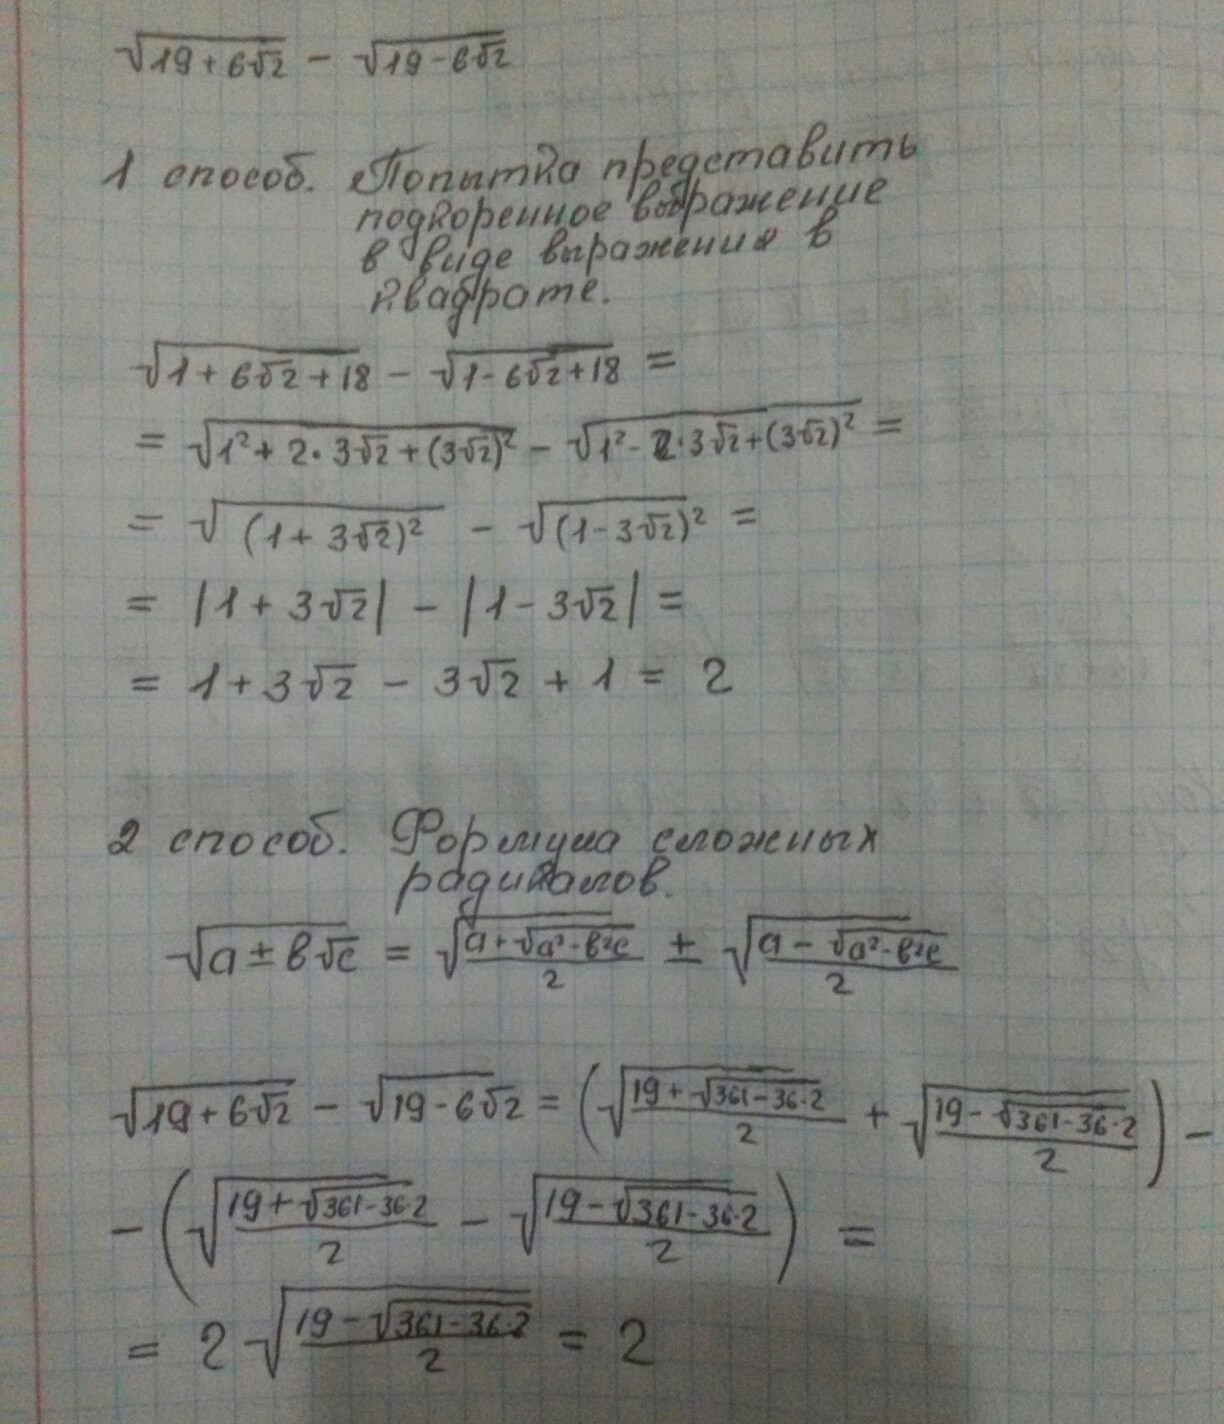 √(19+6√2) − √(19−6√2)
1 способ. Попытка представить
подкоренное выбражение
в виде выражения в
квадрате.
√(1+6√2+18) − √(1−6√2+18) =
= √(1²+2·3√2+(3√2)²) − √(1²−2·3√2+(3√2)²) =
= √((1+3√2)²) − √((1−3√2)²) =
= |1+3√2| − |1−3√2| =
= 1+3√2 − 3√2 + 1 = 2
2 способ. Формула сложных
радикалов.
√(a±b√c) = √((a+√(a²−b²c))/2) ± √((a−√(a²−b²c))/2)
√(19+6√2) − √(19−6√2) = (√((19+√(361−36·2))/2) + √((19−√(361−36·2))/2)) −
− (√((19+√(361−36·2))/2) − √((19−√(361−36·2))/2)) =
= 2√((19−√(361−36·2))/2) = 2